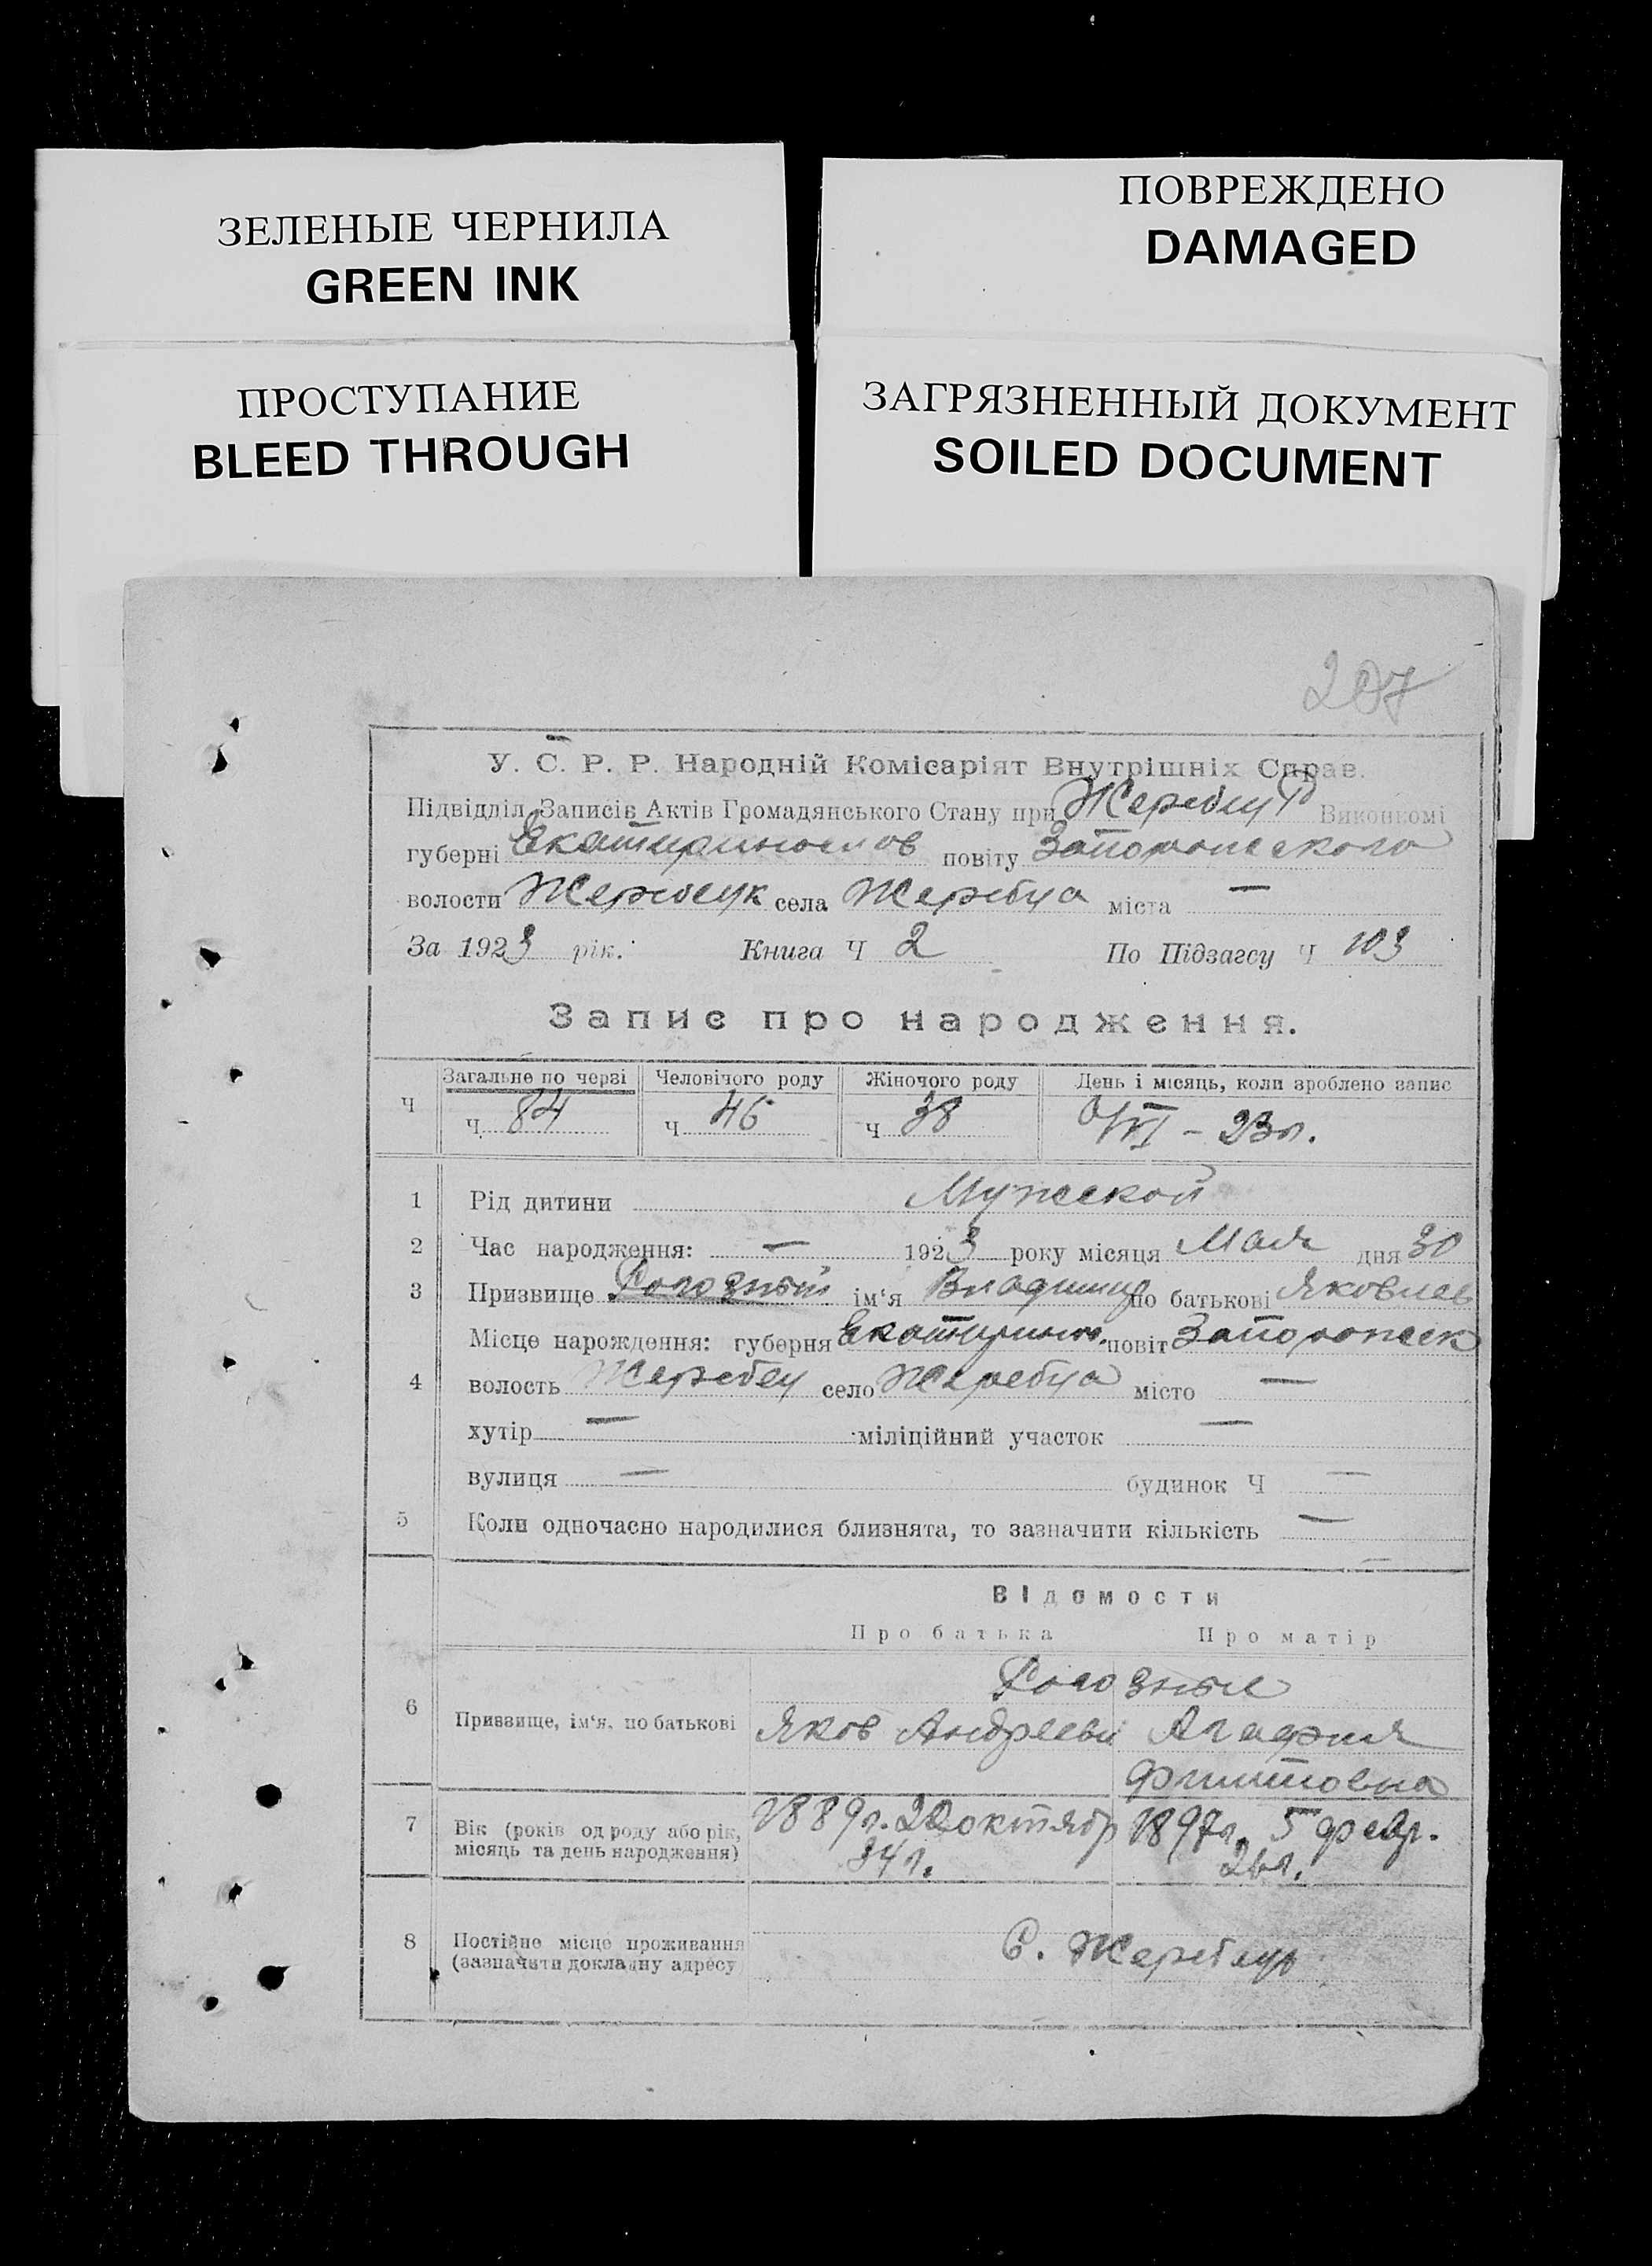 ЗЕЛЕНЫЕ ЧЕРНИЛА
GREEN INK
ПРОСТУПАНИЕ
BLEED THROUGH
ПОВРЕЖДЕНО
DAMAGED
ЗАГРЯЗНЕННЫЙ ДОКУМЕНТ
SOILED DOCUMENT
207
У. С. Р. Р. Народній Комісаріят Внутрішніх Справ.
Підвідділ Записів Актів Громадянського Стану при Виконкомі
губерні Екатеринослов повіту Запорожского
волости села Жеребца міста —
За 1923 рік. Книга Ч 2 По Підзагсу Ч 103
Запис про народження.
Загальне по черзі Человічого роду Жіночого роду День і місяць, коли зроблено запис
Ч Ч 84 Ч 46 Ч 38 VI – 23 г.
1 Рід дитини Мужской
2 Час народження: — 1923 року місяця Мая дня 30
3 Призвище ім'я Владимир по батькові Яковлев
Місце народження: губерня Екатерин. повіт Запорожск
4 волость Жеребец село Жеребца місто —
хутір — міліційний участок —
вулиця — будинок Ч —
5 Коли одночасно народилися близнята, то зазначити кількість —
Відомости
Про батька Про матір
6 Призвище, ім'я, по батькові
Яков Андрееви Агафия
Филиповна
7 Вік (років од роду або рік, місяць та день народження) 1889 г. 20 октябр 1897 г. 5 февр.
34 г. 26 г.
8 Постійне місце проживання
(зазначити докладну адресу С.